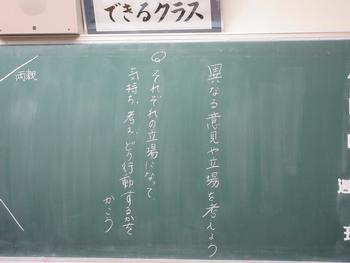 できるクラス
異なる意見や立場を考えよう
Q それぞれの立場になって
気持ち、考え、どう行動するかを
かこう
両親